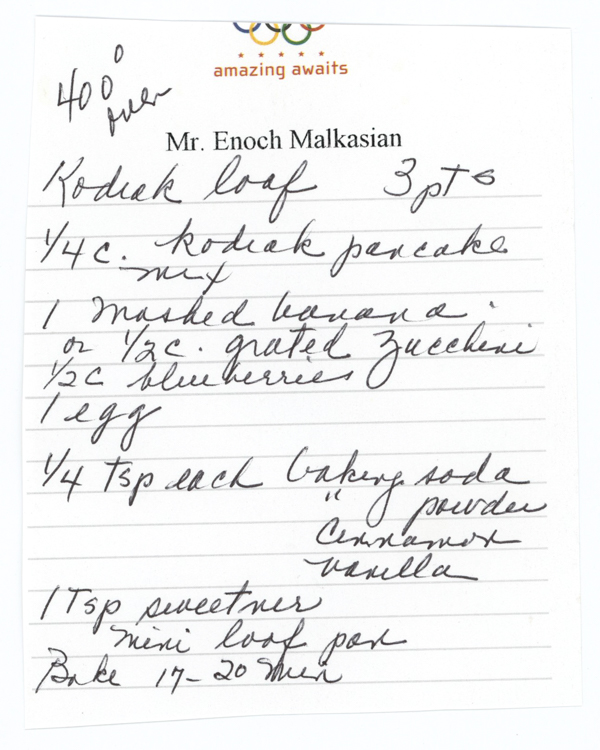 amazing awaits
400°
oven
Mr. Enoch Malkasian
Kodiak loaf 3 pts
1/4 c. Kodiak pancake
mix
1 mashed banana.
or 1/2 c. grated Zucchini
1/2 c blueberries
1 egg
1/4 Tsp each baking soda
" powder
Cinnamon
vanilla
1 Tsp sweetner
mini loaf pan
Bake 17-20 min